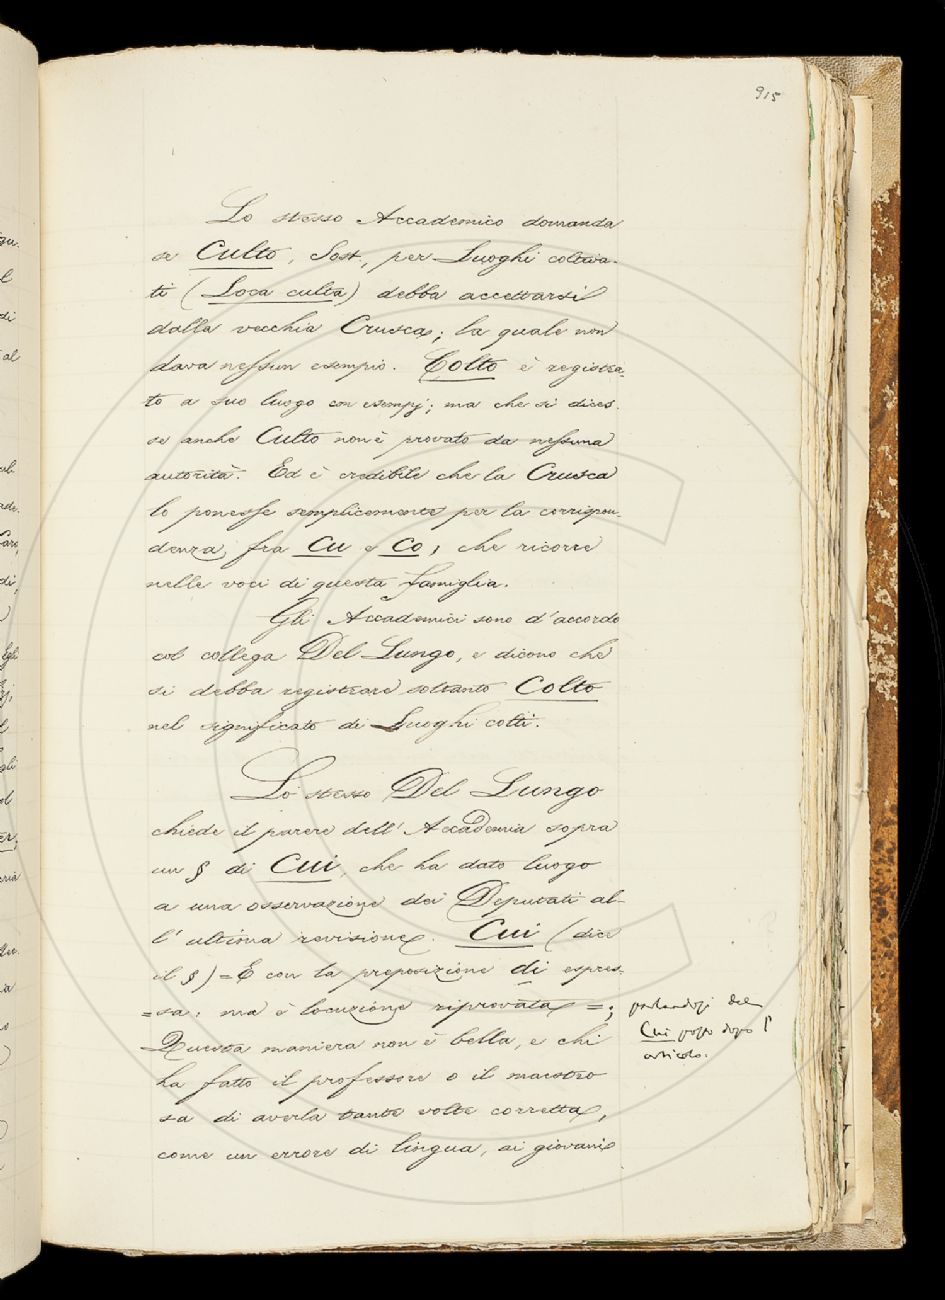 915
Lo stesso Accademico domanda
se Culto, Sost., per Luoghi coltiva-
ti (Loca culta) debba accettarsi
dalla vecchia Crusca; la quale non
dava nessun esempio. Colto è registra-
to a suo luogo con esempj; ma che si dices-
se anche Culto non è provato da nessuna
autorità. Ed è credibile che la Crusca
lo ponesse semplicemente per la corrispon-
denza, fra Cu e Co, che ricorre
nelle voci di questa famiglia.
Gli Accademici sono d'accordo
col collega Del Lungo, e dicono che
si debba registrare soltanto Colto
nel significato di Luoghi colti.
Lo stesso Del Lungo
chiede il parere dell'Accademia sopra
un § di Cui, che ha dato luogo
a una osservazione dei Deputati al-
l'ultima revisione. Cui (dice
il §) = E con la preposizione di espres-
=sa: ma è locuzione riprovata =;
parlandosi del
Cui posto dopo l'
articolo.
Questa maniera non è bella, e chi
ha fatto il professore o il maestro
sa di averla tante volte corretta,
come un errore di lingua, ai giovani